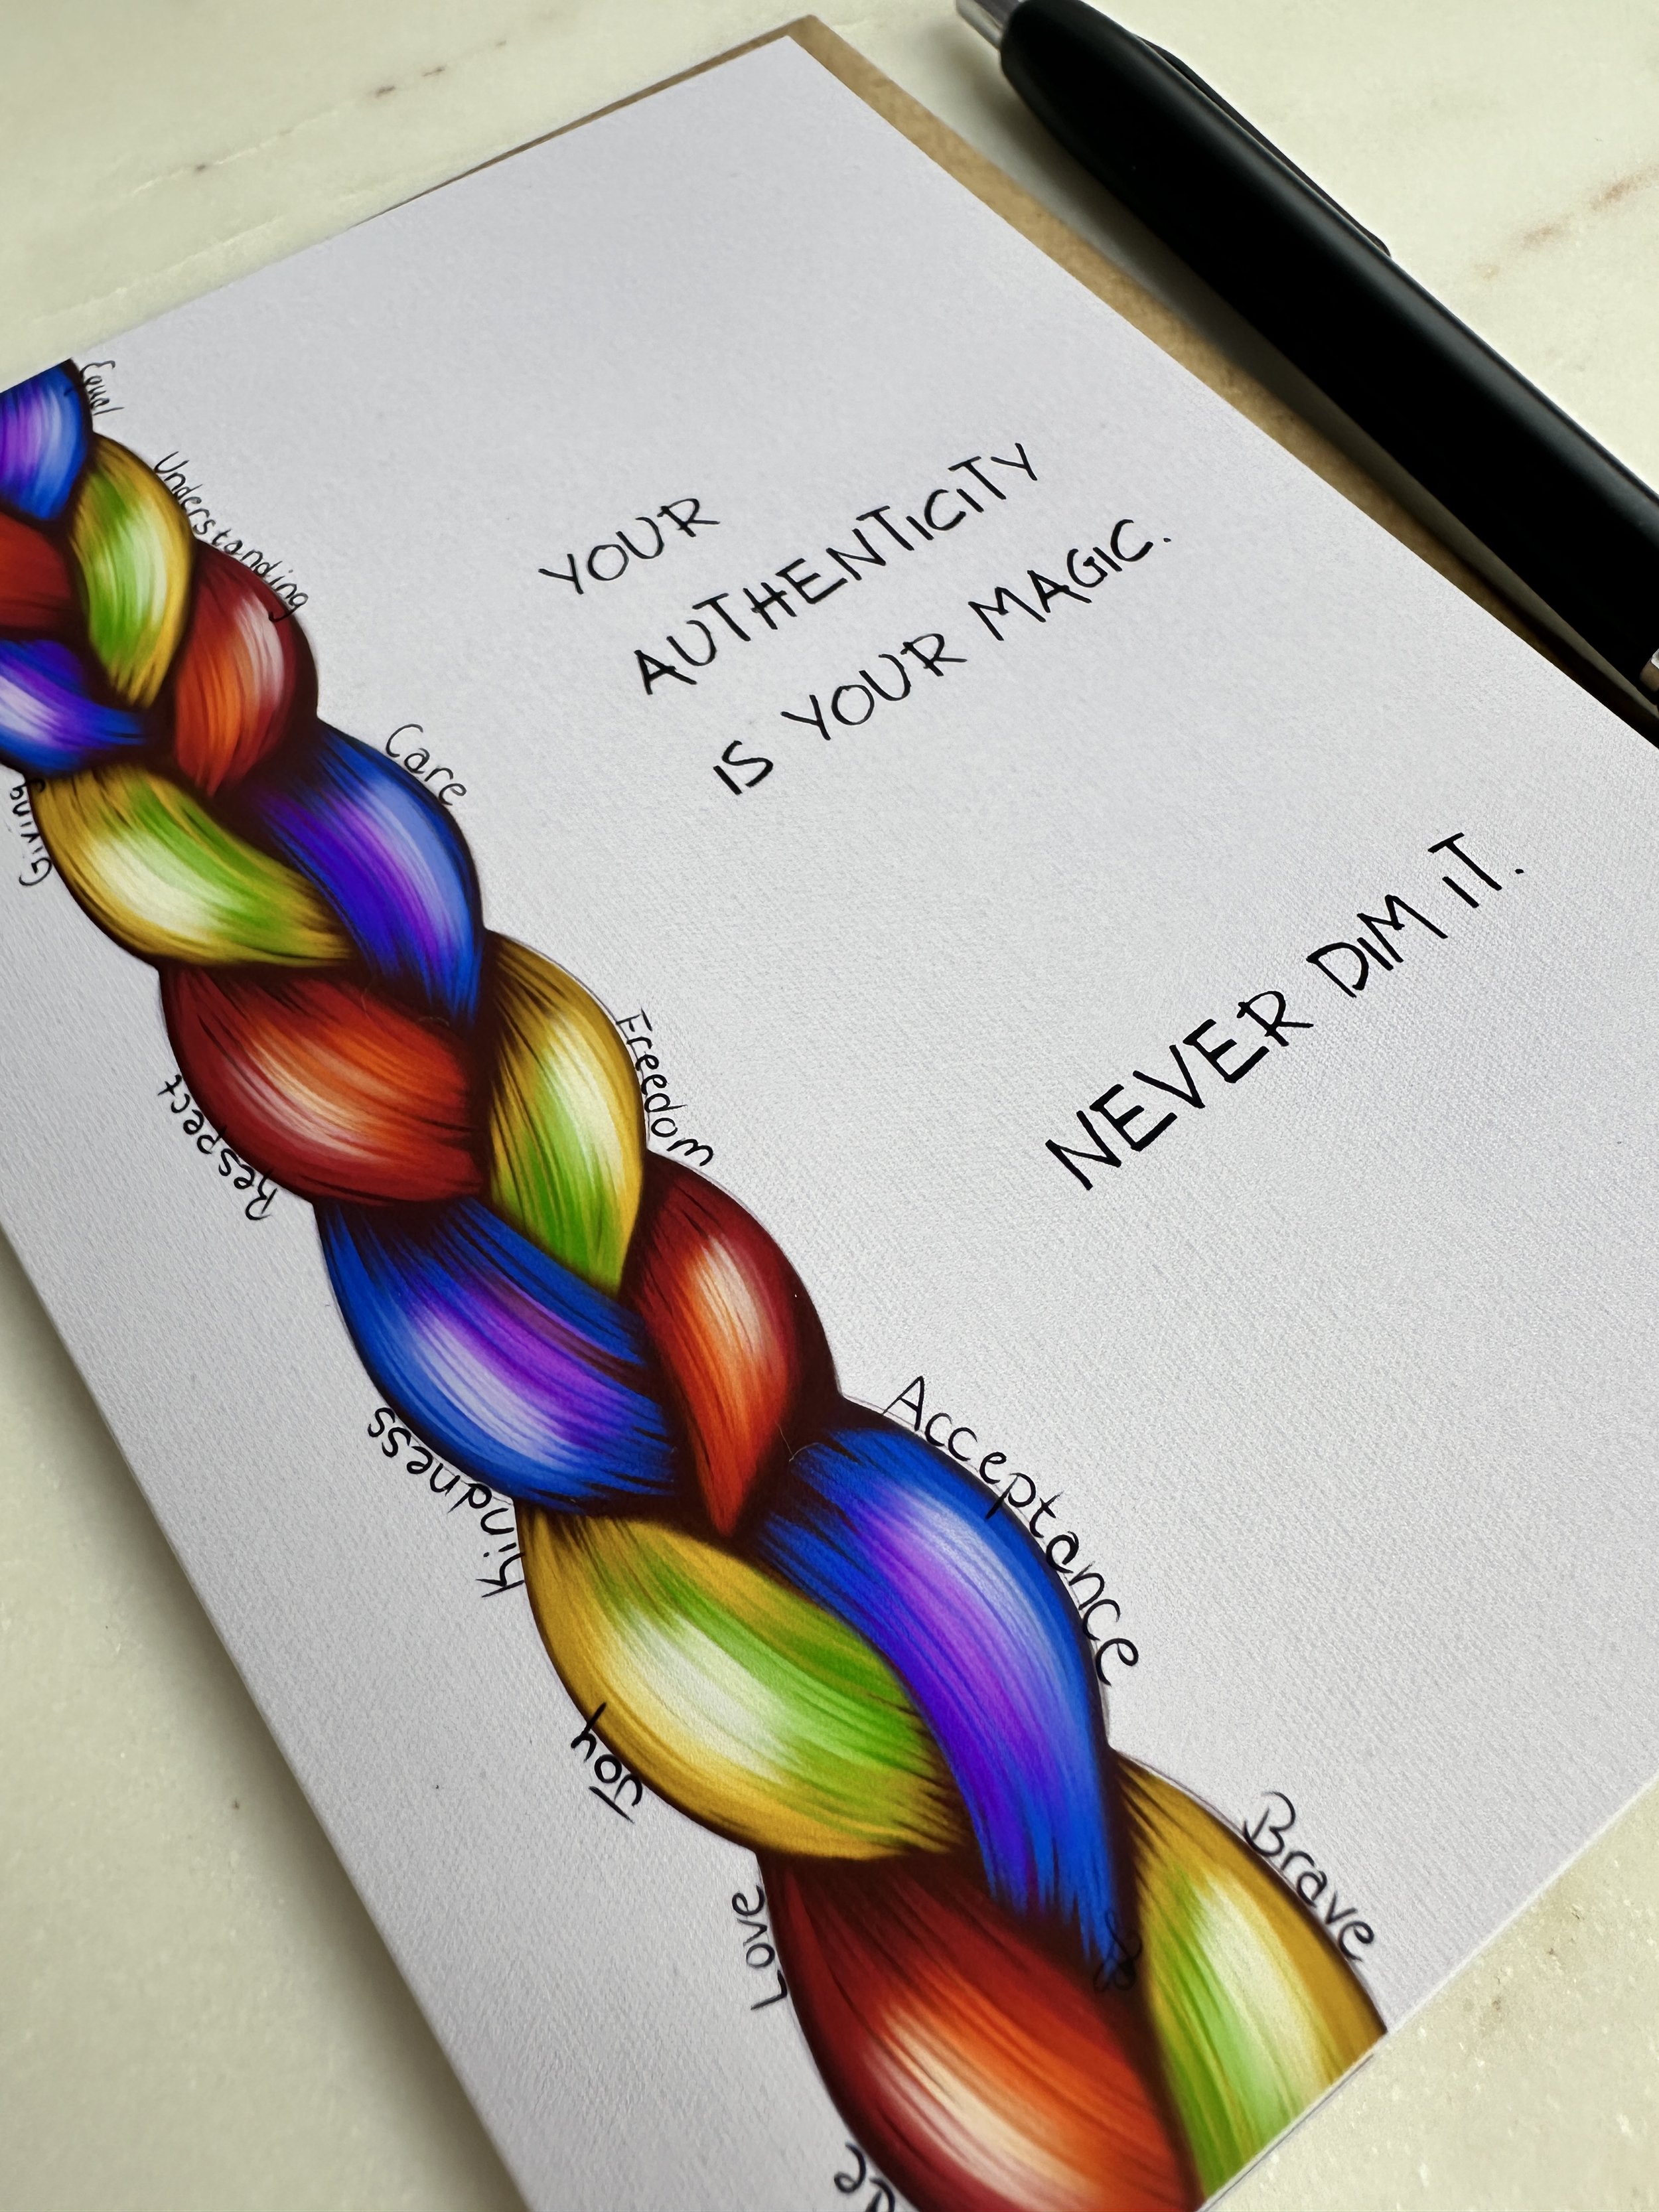 YOUR
AUTHENTICITY
IS YOUR MAGIC.
NEVER DIM IT.
Equal
Understanding
Care
Freedom
Acceptance
Brave
Giving
Respect
Kindness
Joy
Love